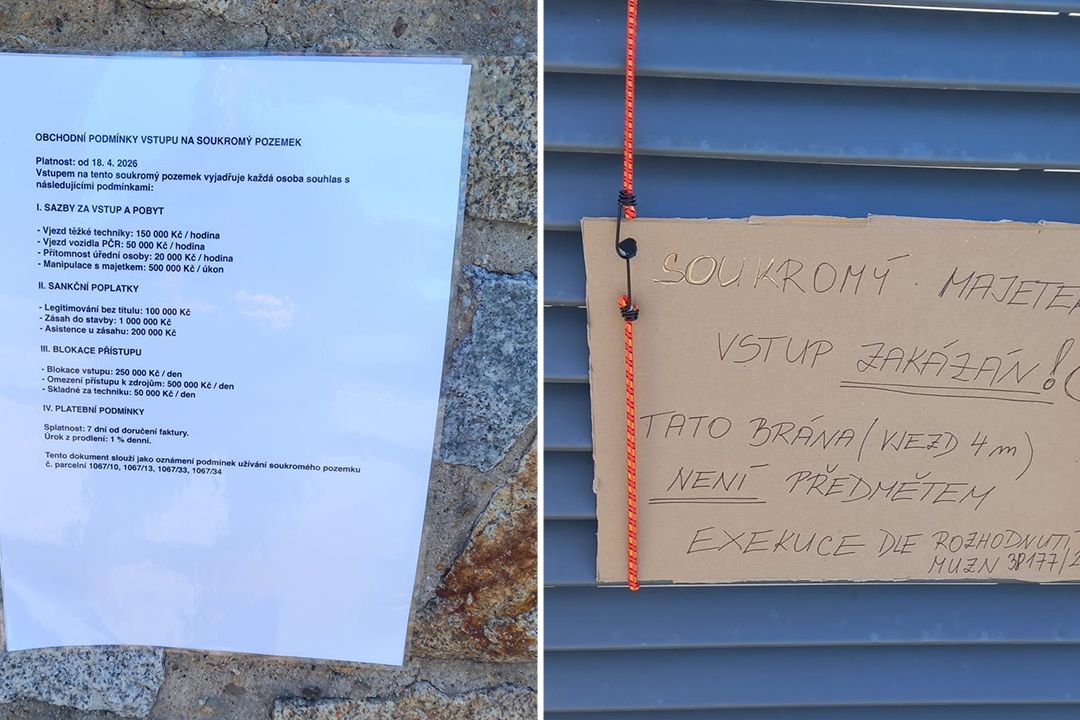 OBCHODNÍ PODMÍNKY VSTUPU NA SOUKROMÝ POZEMEK
Platnost: od 18. 4. 2026
Vstupem na tento soukromý pozemek vyjadřuje každá osoba souhlas s
následujícími podmínkami:
I. SAZBY ZA VSTUP A POBYT
- Vjezd těžké techniky: 150 000 Kč / hodina
- Vjezd vozidla PČR: 50 000 Kč / hodina
- Přítomnost úřední osoby: 20 000 Kč / hodina
- Manipulace s majetkem: 500 000 Kč / úkon
II. SANKČNÍ POPLATKY
- Legitimování bez titulu: 100 000 Kč
- Zásah do stavby: 1 000 000 Kč
- Asistence u zásahu: 200 000 Kč
III. BLOKACE PŘÍSTUPU
- Blokace vstupu: 250 000 Kč / den
- Omezení přístupu k zdrojům: 500 000 Kč / den
- Skladné za techniku: 50 000 Kč / den
IV. PLATEBNÍ PODMÍNKY
Splatnost: 7 dní od doručení faktury.
Úrok z prodlení: 1 % denní.
Tento dokument slouží jako oznámení podmínek užívání soukromého pozemku
č. parcelní 1067/10, 1067/13, 1067/33, 1067/34
SOUKROMÝ MAJETE
VSTUP ZAKÁZÁN!
TATO BRÁNA (VJEZD 4m)
NENÍ PŘEDMĚTEM
EXEKUCE DLE ROZHODNUTÍ
MUZN 38177/2